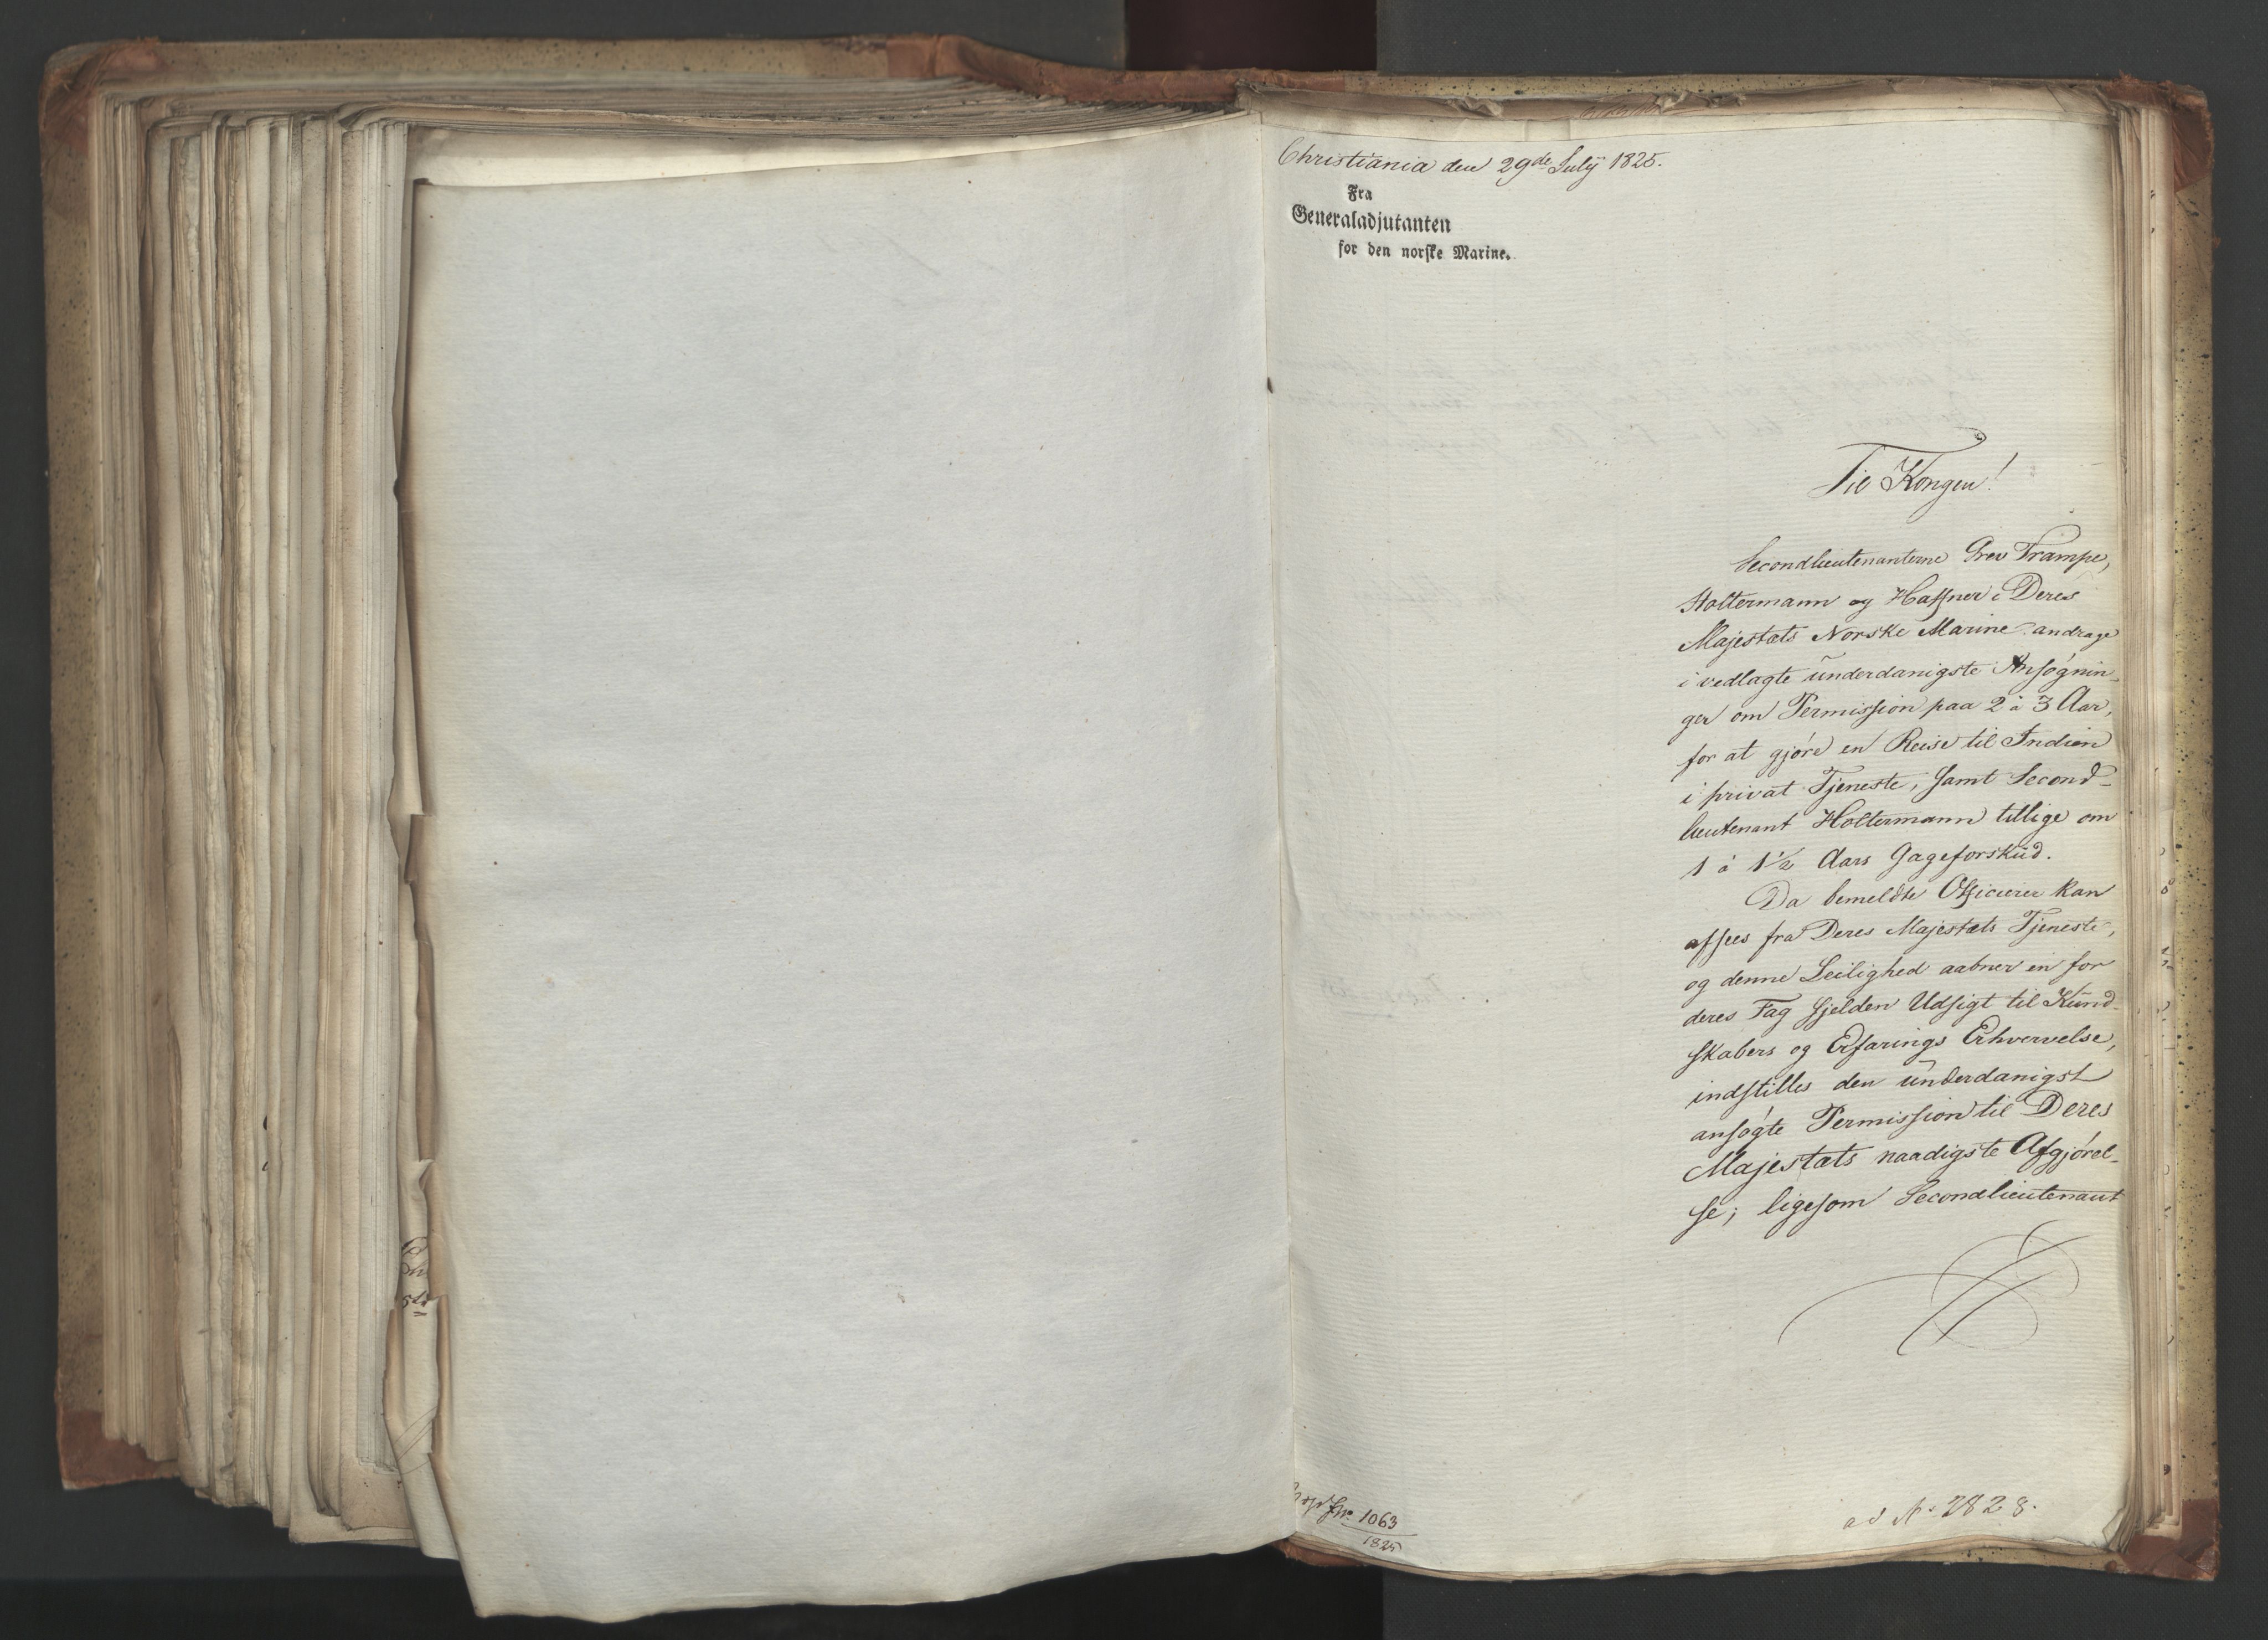 Christiania den 29de July 1825.
Fra
Generaladjutanten
for den norske Marine.
Til Kongen!
Secondlieutenanterne Grev Trampe,
Holtermann og Haffner i Deres
Majestæts Norske Marine andrage
i vedlagte underdanigste Ansøgnin-
ger om Permission paa 2 à 3 Aar,
for at gjøre en Reise til Indien
i privat Tjeneste, samt Second-
lieutenant Holtermann tillige om
1 à 1½ Aars Gageforskud.
Da bemeldte Officierer kan
afsees fra Deres Majestæts Tjeneste,
og denne Leilighed aabner en for
deres Fag sjelden Udsigt til Kund-
skabers og Erfarings Erhvervelse,
indstilles den underdanigst
ansøgte Permission til Deres
Majestæts naadigste Afgjørel-
se; ligesom Secondlieutenant
1063
1825
ad No 2828.